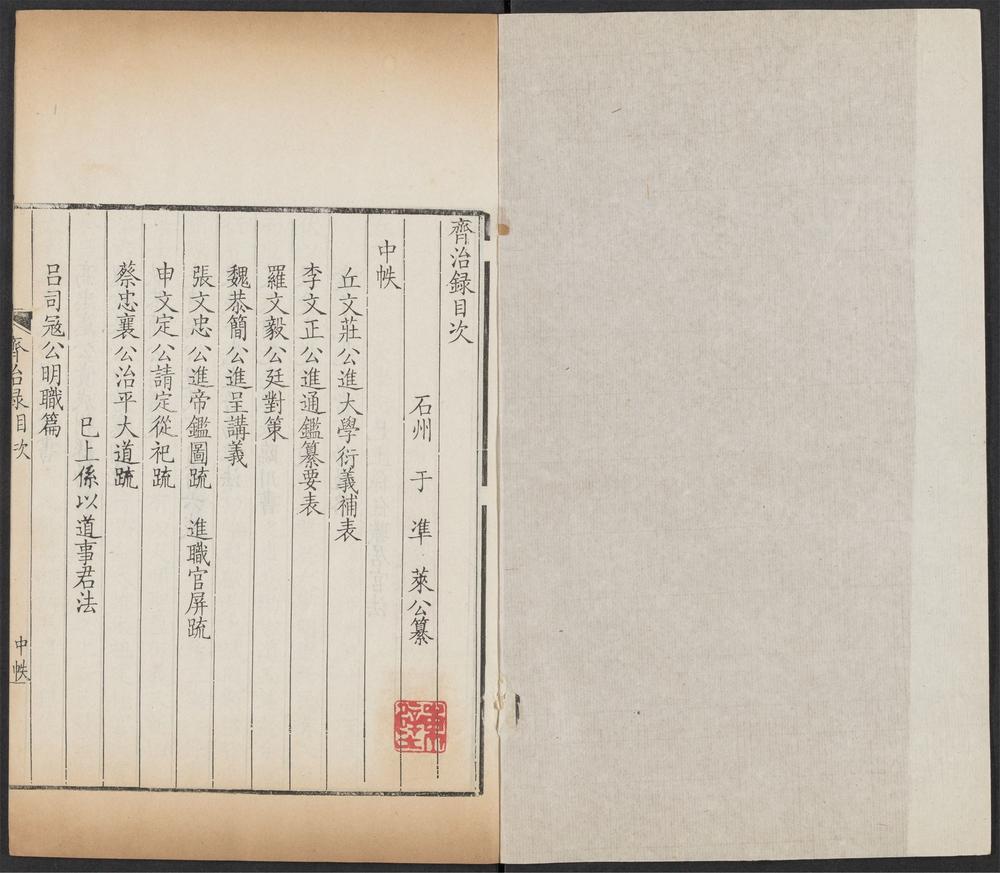 齊治録目次
石州　于　準　萊公纂
中帙
丘文莊公進大學衍義補表
李文正公進通鑑纂要表
羅文毅公廷對策
魏恭簡公進呈講義
張文忠公進帝鑑圖疏　進職官屏疏
申文定公請定從祀疏
蔡忠襄公治平大道疏
已上係以道事君法
吕司宼公明職篇
齊治録目次
中帙